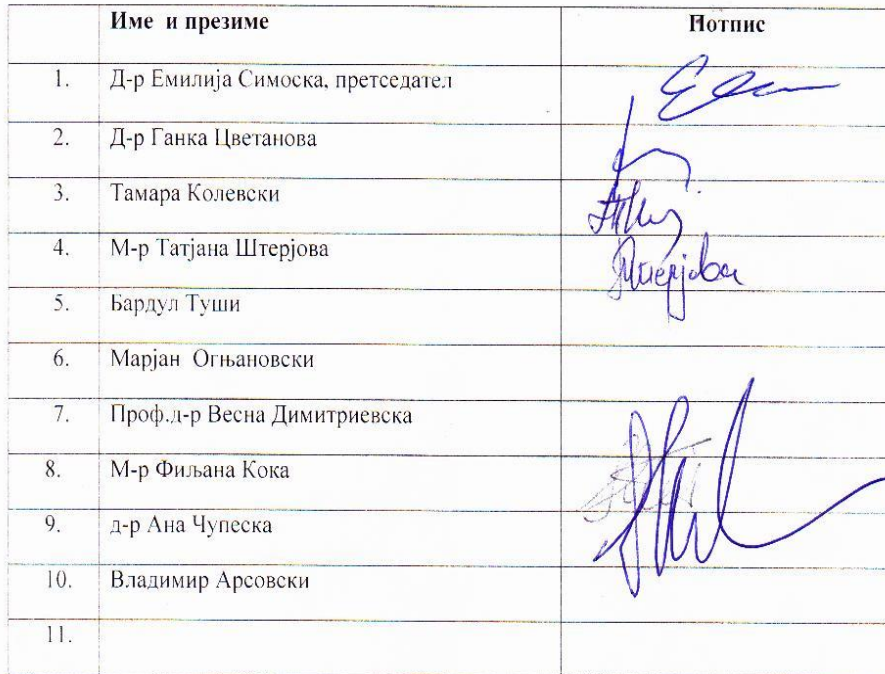 Име и презиме Потпис
1. Д-р Емилија Симоска, претседател
2. Д-р Ганка Цветанова
3. Тамара Колевски
4. М-р Татјана Штерјова Штерјова
5. Бардул Туши
6. Марјан Огњановски
7. Проф.д-р Весна Димитриевска
8. М-р Фиљана Кока
9. д-р Ана Чупеска
10. Владимир Арсовски
11.